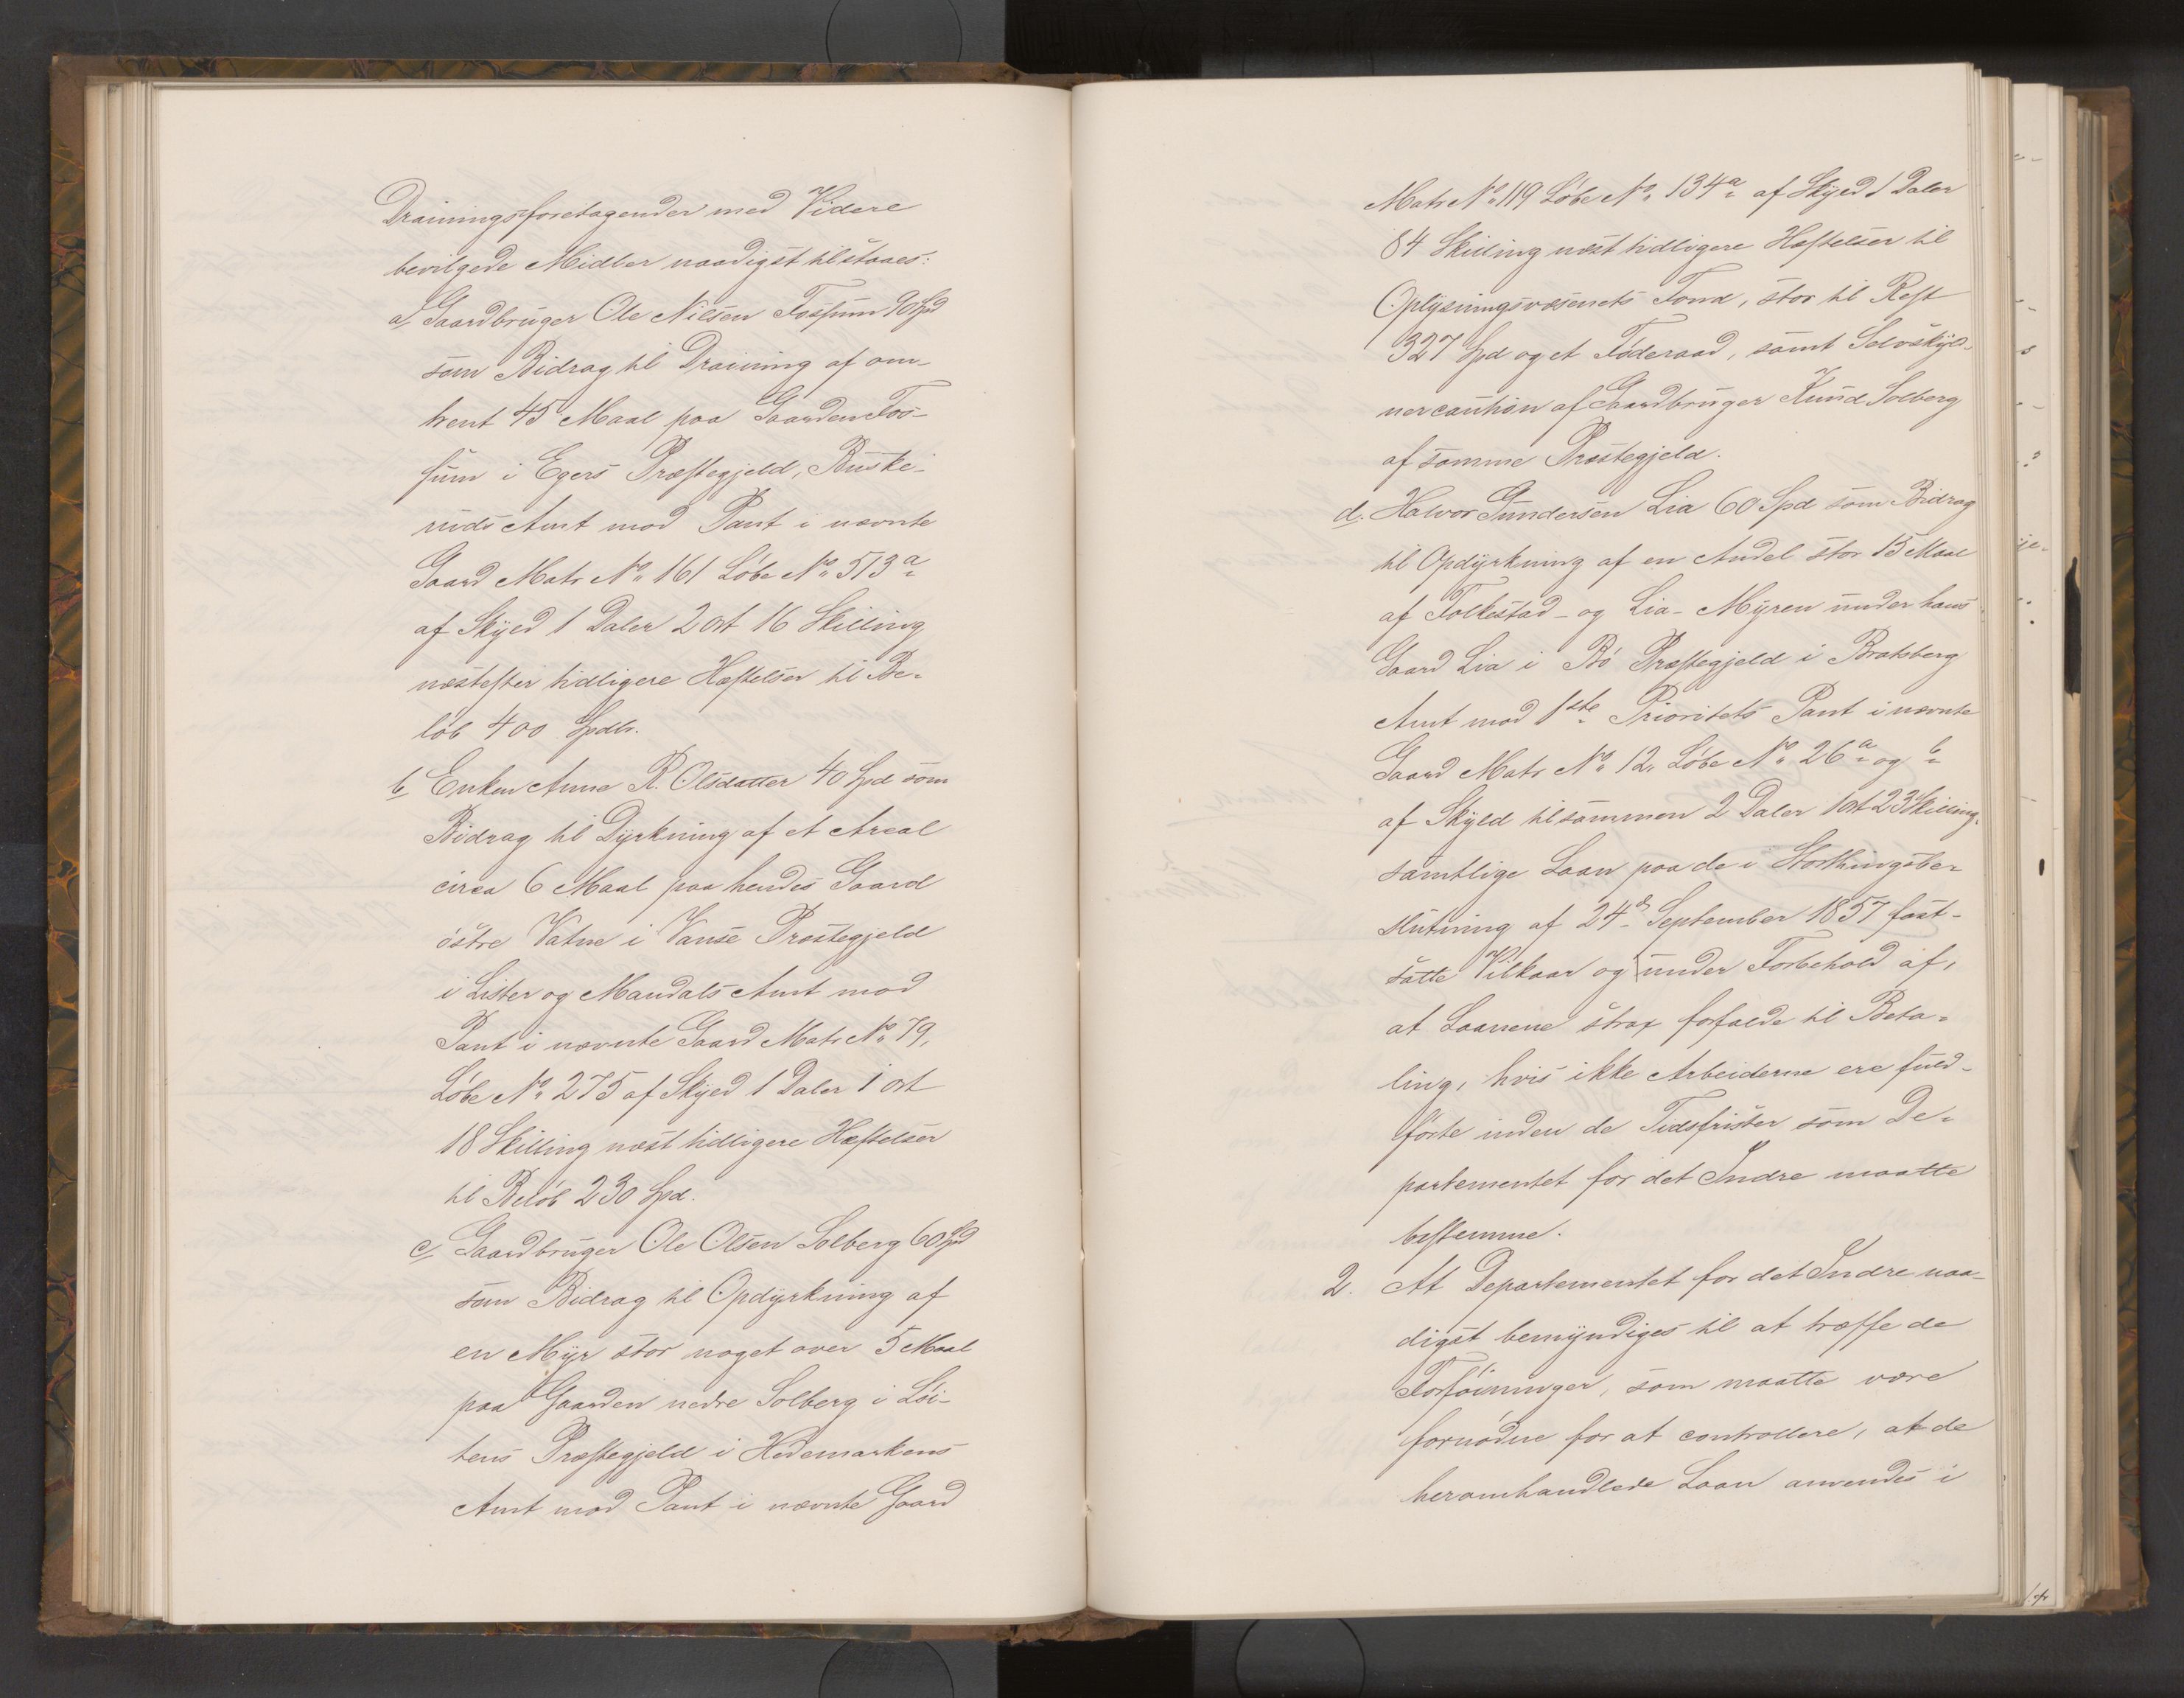 Drainingsforetagender med Videre
bevilgede Midler naadigst tilstaaes:
a, Gaardbruger Ole Nilsen Fossum 90 Spd
som Bidrag til Draining af om-
trent 45 Maal paa Gaarden Fos-
sum i Egers Præstegjeld, Buske-
ruds Amt mod Pant i nævnte
Gaard Matr No 161 Løbe No 513 a
af Skyld 1 Daler 2 ort 16 Skilling
næstefter tidligere Hæftelser til Be-
løb 400 Spdlr.
b Enken Anne R. Olsdatter 40 Spd som
Bidrag til Dyrkning af et Areal
circa 6 Maal paa hendes Gaard
østre Vatne i Vanse Præstegjeld
i Lister og Mandals Amt mod
Pant i nævnte Gaard Matr No 79,
Løbe No 275 af Skyld 1 Daler 1 ort
18 Skilling næst tidligere Hæftelser
til Beløb 230 Spd.
c, Gaardbruger Ole Olsen Solberg 60 Spd
som Bidrag til Opdyrkning af
en Myr stor noget over 5 Maal
paa Gaarden nedre Solberg i Løi-
tens Præstegjeld i Hedemarkens
Amt mod Pant i nævnte Gaard
Matr No 119 Løbe No 134 a af Skyld 1 Daler
84 Skilling næst tidligere Hæftelser til
Oplysningsvæsenets Fond, stor til Rest
327 Spd og et Føderaad, samt Selvskyld-
nercaution af Gaardbruger Knud Solberg
af samme Præstegjeld.
d. Halvor Gundersen Lia 60 Spd som Bidrag
til Opdyrkning af en Andel stor 15 Maal
af Folkestad- og Lia-Myren under hans
Gaard Lia i Bø Præstegjeld i Bratsberg
Amt mod 1ste Prioritets Pant i nævnte
Gaard Matr No 12, Løbe No 26 a og b
af Skyld tilsammen 2 Daler 1 ort 23 Skilling,
samtlige Laan paa de i Storthingsbe-
slutning af 24 d September 1857 fast-
satte Vilkaar og under Forbehold af,
at Laanene strax forfalde til Beta-
ling, hvis ikke Arbeiderne ere fuld-
førte inden de Tidsfrister som De-
partementet for det Indre maatte
bestemme.
2. At Departementet for det Indre naa-
digst bemyndiges til at træffe de
Forføininger, som maatte være
fornødne for at controllere, at de
heromhandlede Laan anvendes i